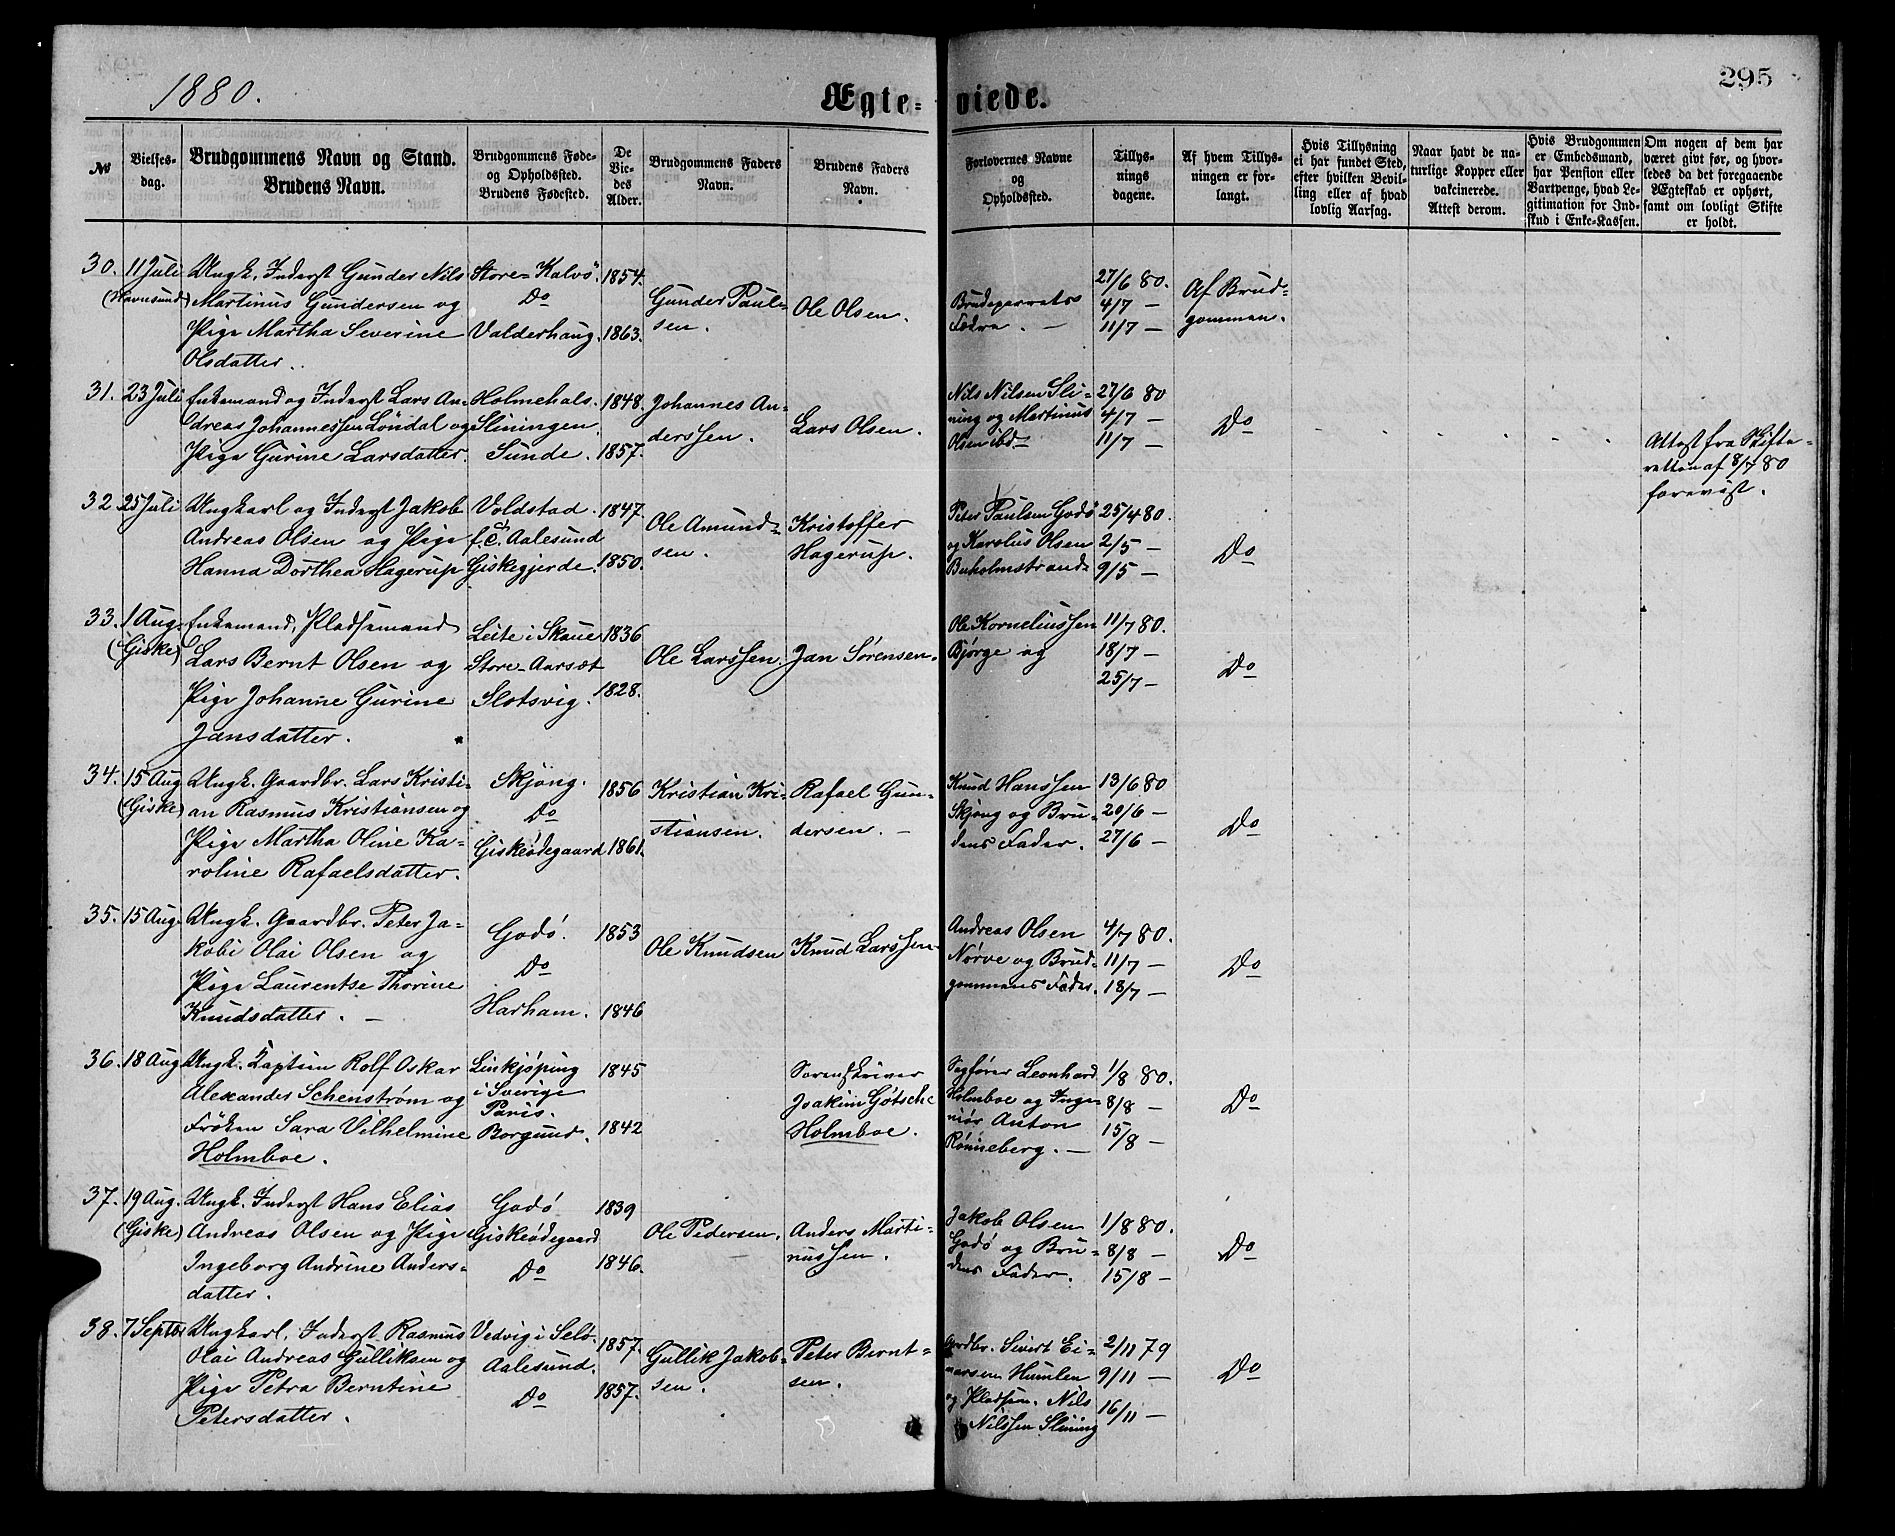 1880.
Ægte-viede.
295
№
Vielses-dag.
Brudgommens Navn og Stand.
Brudens Navn.
Brudgommens Føde-
og Opholdssted.
Brudens Fødested.
De
Vie-
des
Alder.
Brudgommens Faders
Navn.
Brudens Faders
Navn.
Forlovernes Navne
og
Opholdssted.
Tillys-
nings
dagene.
Af hvem Tillys-
ningen er for-
langt.
Hvis Tillysning
ei har fundet Sted,
efter hvilken Bevil-
ling eller af hvad
lovlig Aarsag.
Naar havt de na-
turlige Kopper eller
vakcinerede.
Attest derom.
Hvis Brudgommen
er Embedsmand,
har Pension eller
Vartpenge, hvad Le-
gitimation for Ind-
skud i Enke-Kassen.
Om nogen af dem har
været givt før, og hvor-
ledes da det foregaaende
Ægteskab er ophørt,
samt om lovligt Skifte
er holdt.
30. 11 Juli Ungk. Inderst Gunder Nils Store-Kalvö. 1854. 27/6 80.
(Havnsund) Martinus Gundersen og Do Gunder Paul- Ole Olsen. Brudeparrets 4/7 — Af Brud-
Pige Martha Severine Valderhaug. 1863. sen. Fædre. — 11/7 — gommen.
Olsdatter.
31. 23 Juli Enkemand og Inderst Lars An- Holmehals. 1848. Johannes An- Nils Nilsen Sli- 27/6 80
dreas Johannessen Löndal og Sliningen. derssen. Lars Olsen. ning og Martinus 4/7 — Do
Pige Gurine Larsdatter. Sunde. 1857. Olsen ibd. 11/7 — Attest fra Skifte-
retten af 8/7 80
forevist.
32. 25 Juli Ungkarl og Inderst Jakob Voldstad. 1847. Ole Amund- Kristoffer Peter Paulsen Godö 25/4 80.
Andreas Olsen og Pige f. C. Aalesund sen. Hagerup. og Karolus Olsen 2/5 — Do
Hanna Dorthea Hagerup Giskegjerde. 1850. Buholmstrand 9/5 —
33. 1 Aug. Enkemand, Pladsemand Leite i Skaue 1836 Ole Korneliussen 11/7 80.
(Giske) Lars Bernt Olsen og Store-Aarsæt Ole Larssen. Jan Sørensen. Bjørge og 18/7 — Do
Pige Johanne Gurine Slotsvig. 1828. 25/7 —
Jansdatter.
34. 15 Aug Ungk. Gaardbr. Lars Kristi- Skjong. 1856 Kristian Kri- Rafael Gun- Knud Hanssen 13/6 80
(Giske) an Rasmus Kristiansen og Do stiansen. dersen. — Skjong og Bru- 20/6 — Do
Pige Martha Oline Ka- Giskeödegaard 1861. dens Fader. 27/6 —
roline Rafaelsdatter.
35. 15 Aug. Ungk. Gaardbr. Peter Ja- Godö. 1853 Andreas Olsen 4/7 80.
kobi Olai Olsen og Do Ole Knudsen Knud Larssen Nørve og Brud- 11/7 — Do
Pige Laurentse Thorine Harham. 1846 gommens Fader. 18/7 —
Knudsdatter. —
36. 18 Aug Ungk. Kaptein Rolf Oskar Linkjöping 1845 Sorenskriver Sagfører Leonhard 1/8 80.
Alexander Schenstrøm og i Sverige Joakim Götsche Holmboe og Inge- 8/8 — Do
Frøken Sara Vilhelmine Paris. Holmboe. niör Anton 15/8 —
Holmboe. Borgund. 1842 Rønneberg. —
37. 19 Aug. Ungk. Inderst Hans Elias Godö 1839 Jakob Olsen 1/8 80.
(Giske) Andreas Olsen og Pige Giskeödegaard Ole Pedersen. Anders Marti- Godö og Bru- 8/8 — Do
Ingeborg Andrine Anders- Do 1846. nussen. dens Fader. 15/8 —
datter.
38. 7 Septbr Ungkarl, Inderst Rasmus Vedvig i Selö. 1857. Gaardbr. Sivert Ei- 2/11 79
Olai Andreas Gulliksen og Aalesund. Gullik Jakob- Peter Bernt- narsen Humlen 9/11 — Do
Pige Petra Berntine Do 1857. sen. sen. og Pladsm. Nils 16/11 —
Petersdatter. Nilssen Slining